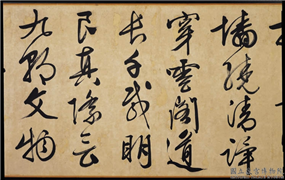 墻繞清蹕
穿雲閣道
長千載明
良真際會
九朝文物
國立故宮博物院